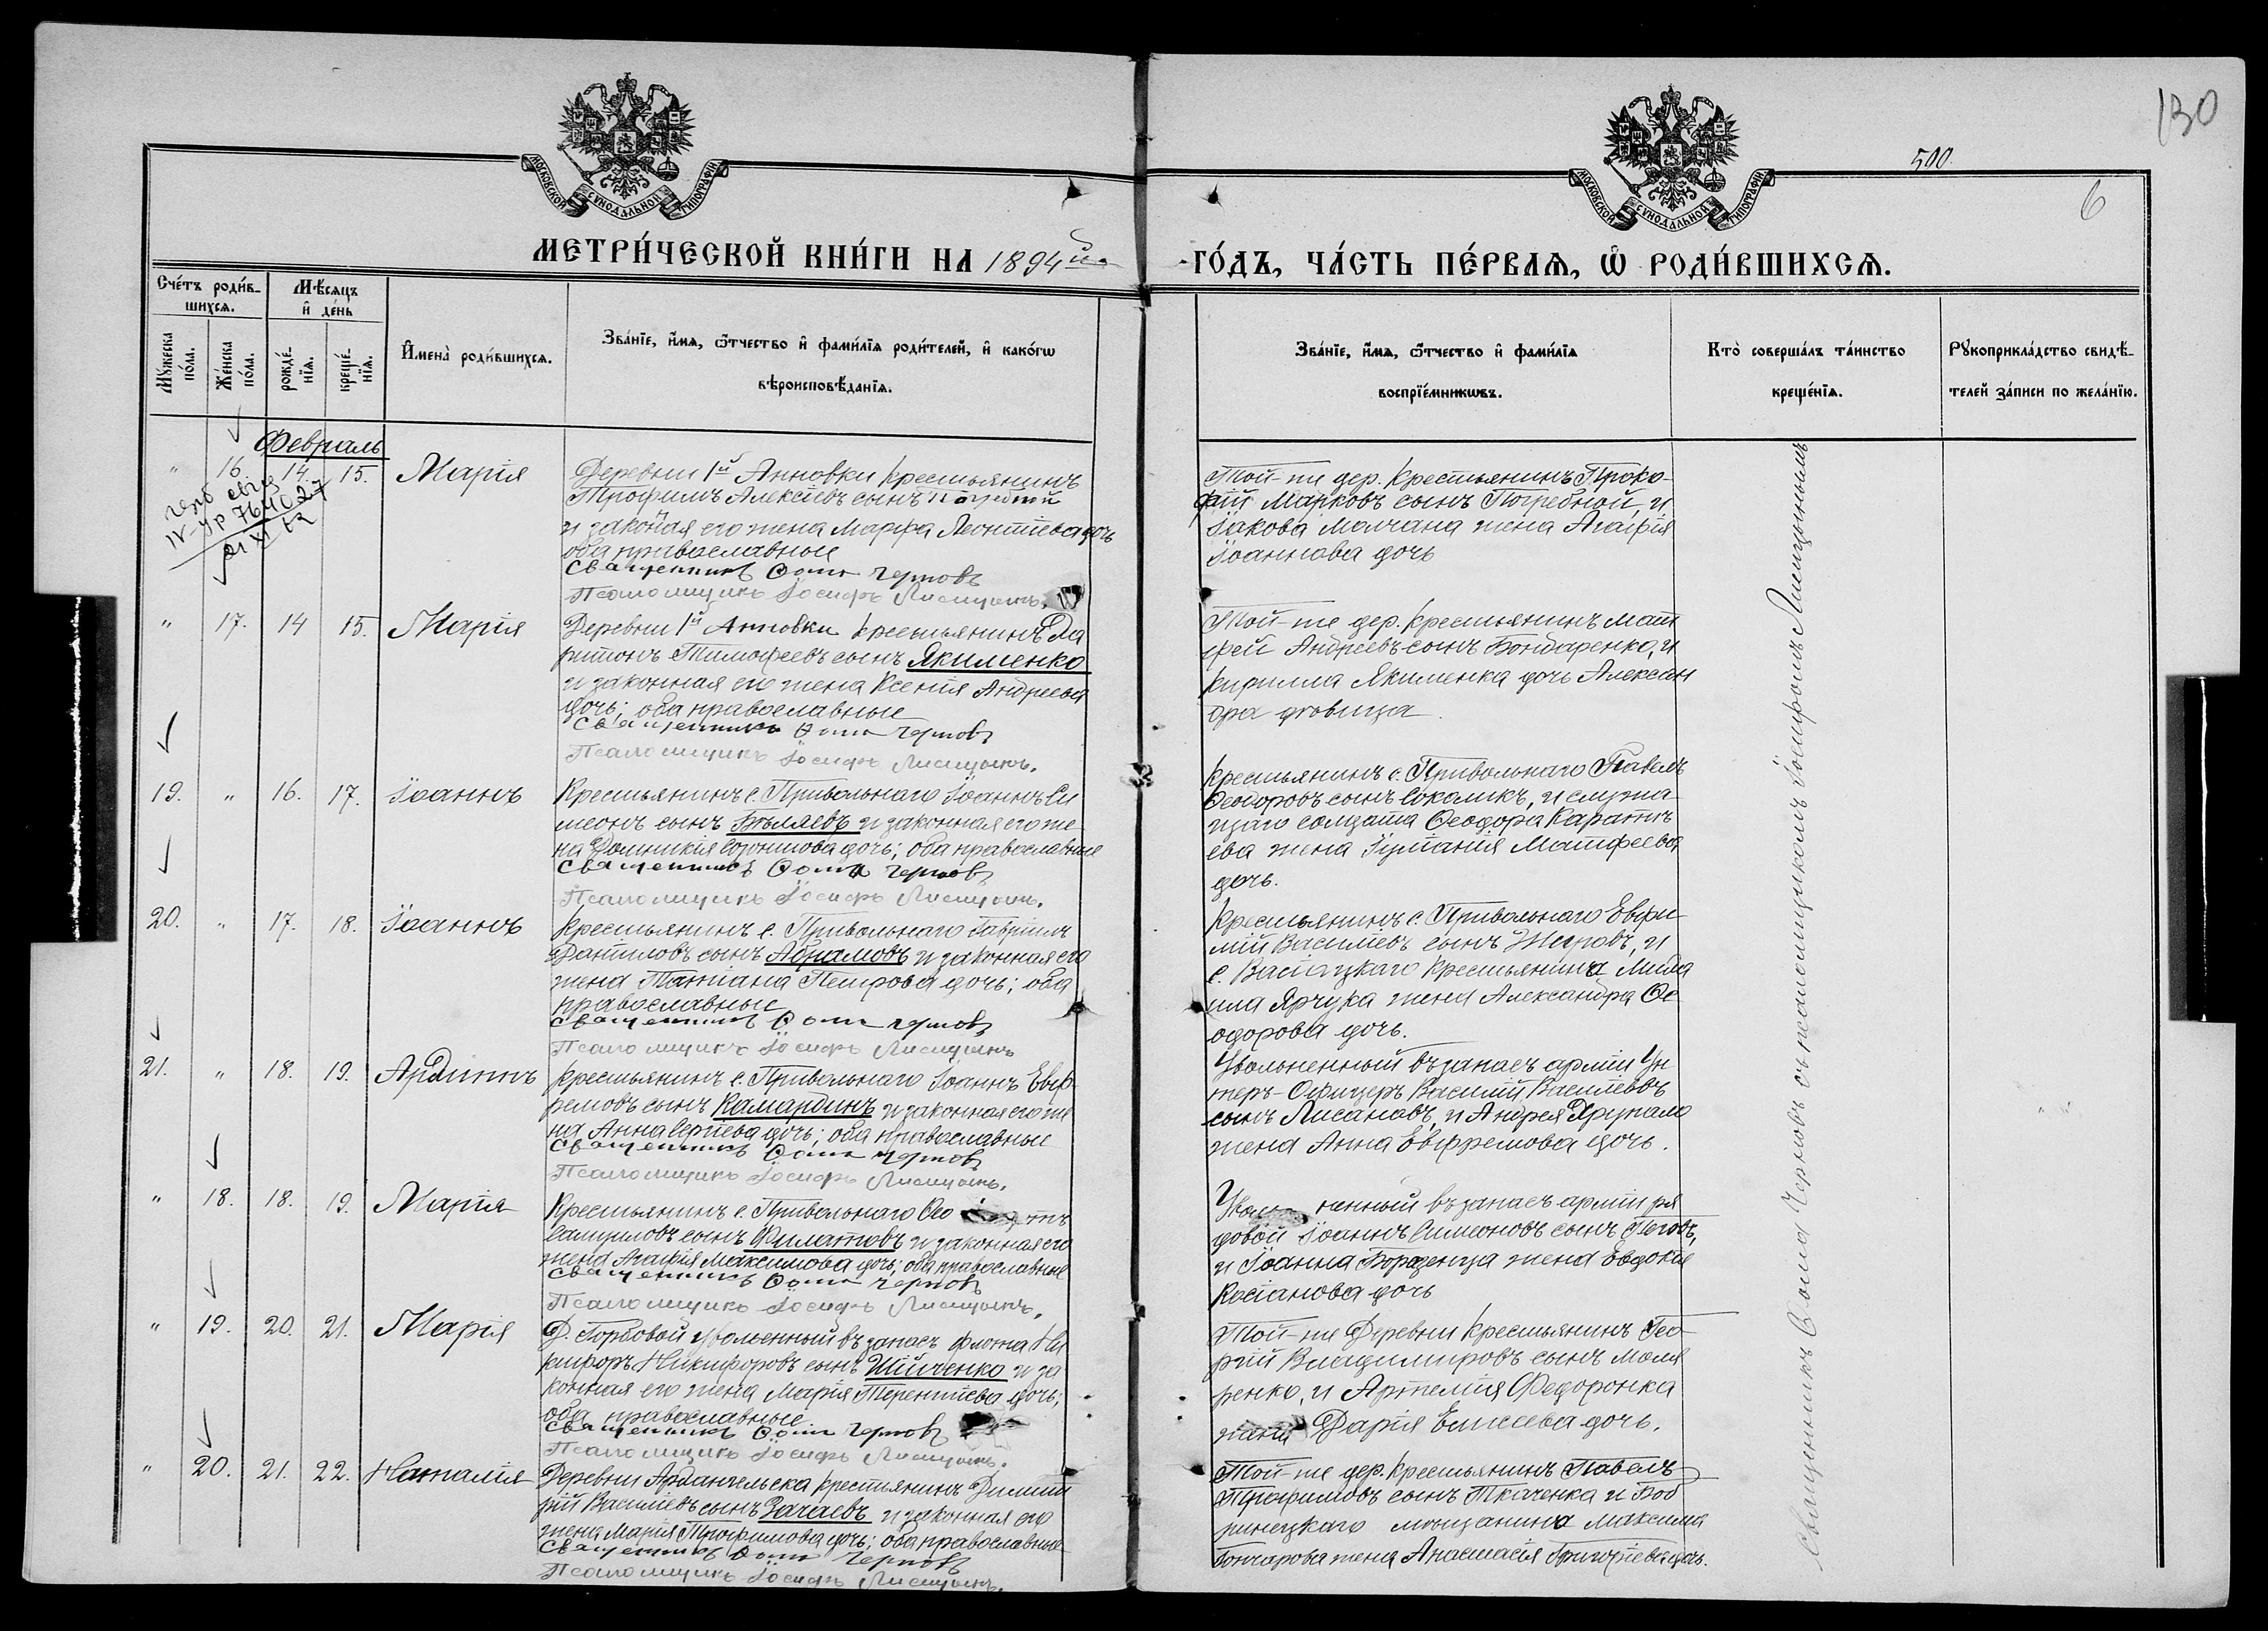 130
500
6
МОСКОВСКОЙ СѴНОДАЛЬНОЙ ТИПОГРАФІИ
МОСКОВСКОЙ СѴНОДАЛЬНОЙ ТИПОГРАФІИ
МЕТРИ́ЧЕСКОЙ КНИ́ГИ НА 1894й
ГО́ДЪ, ЧА́СТЬ ПЕ́РВАЯ, Ѡ РОДИ́ВШИХСЯ.
Сче́тъ роди́в-
шихся.
Мѣ́сяцъ
и҆ де́нь
Мꙋ́жеска
по́ла.
Же́нска
по́ла.
рожде́-
нїя.
креще́-
нїя.
И҆мена̀ роди́вшихся.
Зва́нїе, и҆́мя, ѻ҆́тчество и҆ фами́лїя роди́телей, и҆ како́гѡ
вѣроисповѣ́данїя.
Зва́нїе, и҆́мя, ѻ҆́тчество и҆ фами́лїя
воспрїе́мникѡвъ.
Кто̀ соверша́лъ та́инство
креще́нїя.
Рꙋкоприкла́дство свидѣ́-
телей за́писи по жела́нїю.
Февраль
" 16. 14. 15. Марія
Деревни 1й Анновки крестьянинъ
Трофимъ Алексіевъ сынъ Погребной
и законая его жена Марфа Леонтіева дочь
оба православные
Священникъ Ѳома Черновъ
Псаломщикъ Іосифъ Лисицынъ.
Той-же дер. крестьянинъ Проко-
фій Марковъ сынъ Погребной, и
Іакова Молчана жена Агафія
Іоаннова дочь
" 17. 14 15. Марія
Деревни 1й Анновки крестьянинъ Ха
ритонъ Тимофеевъ сынъ Якименко
и законная его жена Ксенія Андреева
дочь; оба православные
Священникъ Ѳома Черновъ
Псаломщикъ Іосифъ Лисицынъ.
Той-же дер. крестьянинъ Мат
фей Андреевъ сынъ Бондаренко, и
Кирилла Якименка дочь Алексан
дра дѣвица.
19. " 16. 17. Іоаннъ
Крестьянинъ с. Привольнаго Іоаннъ Си
меонъ сынъ Бѣляевъ и законная его же
на Домникія Софонтова дочь; оба православные
Священникъ Ѳома Черновъ
Псаломщикъ Іосифъ Лисицынъ.
Крестьянинъ с. Привольнаго Павелъ
Ѳеодоровъ сынъ Соколикъ, и служа
щаго солдата Ѳеодора
ева жена Іуліанія Матфеева
дочь.
20. " 17. 18. Іоаннъ
Крестьянинъ с. Привольнаго Гавріилъ
Даниловъ сынъ Абрамовъ и законная его
жена Татіана Петрова дочь; оба
православные
Священникъ Ѳома Черновъ
Псаломщикъ Іосифъ Лисицынъ
Крестьянинъ с. Привольнаго Евфи
мій Василіевъ сынъ и
с. крестьянина Миха
ила Ярчука жена Александра Ѳе
одорова дочь.
21. " 18. 19. Архиппъ
Крестьянинъ с. Привольнаго Іоаннъ Евф
ремовъ сынъ Камардинъ и законная его же
на Анна Сергіева дочь; оба православные
Священникъ Ѳома Черновъ
Псаломщикъ Іосифъ Лисицынъ.
Уволненный въ запасъ арміи Ун
теръ-Офицеръ Василій Василіевъ
сынъ и Андрея
жена Анна Евфремова дочь.
" 18. 18. 19. Марія
Крестьянинъ с. Привольнаго
Самуиловъ сынъ Филатовъ и законная его
жена Агафія Максимова дочь; оба православные
Священникъ Ѳома Черновъ
Псаломщикъ Іосифъ Лисицынъ.
Уволненный въ запасъ арміи ря
довой Іоаннъ Симеоновъ сынъ
и Іоанна Бороденца жена Евдокія
Касіанова дочь
" 19. 20. 21. Марія
Д. Горбовой уволенный въ запасъ флота Ни
кифоръ Никифоровъ сынъ и за
конная его жена Марія Терентіева дочь;
оба православные
Священникъ Ѳома Черновъ
Псаломщикъ Іосифъ Лисицынъ.
Той-же Деревни крестьянинъ Гео
ргій Владимировъ сынъ Моля
ренко, и Артемія Федоронка
жена Дарія Елисеева дочь.
" 20. 21. 22. Наталія
Деревни Архангельска крестьянинъ Димит
рій Василіевъ сынъ Зачаевъ и законная его
жена Марія Трофимова дочь; оба православные
Священникъ Ѳома Черновъ
Псаломщикъ Іосифъ Лисицынъ.
Той-же дер. крестьянинъ Павелъ
Трофимовъ сынъ Ткаченка и Боб
ринецкаго мѣщанина Максима
Гончарова жена Анастасія Григоріева дочь.
Священникъ Ѳома Черновъ съ псаломщикомъ Іосифомъ Лисицынымъ